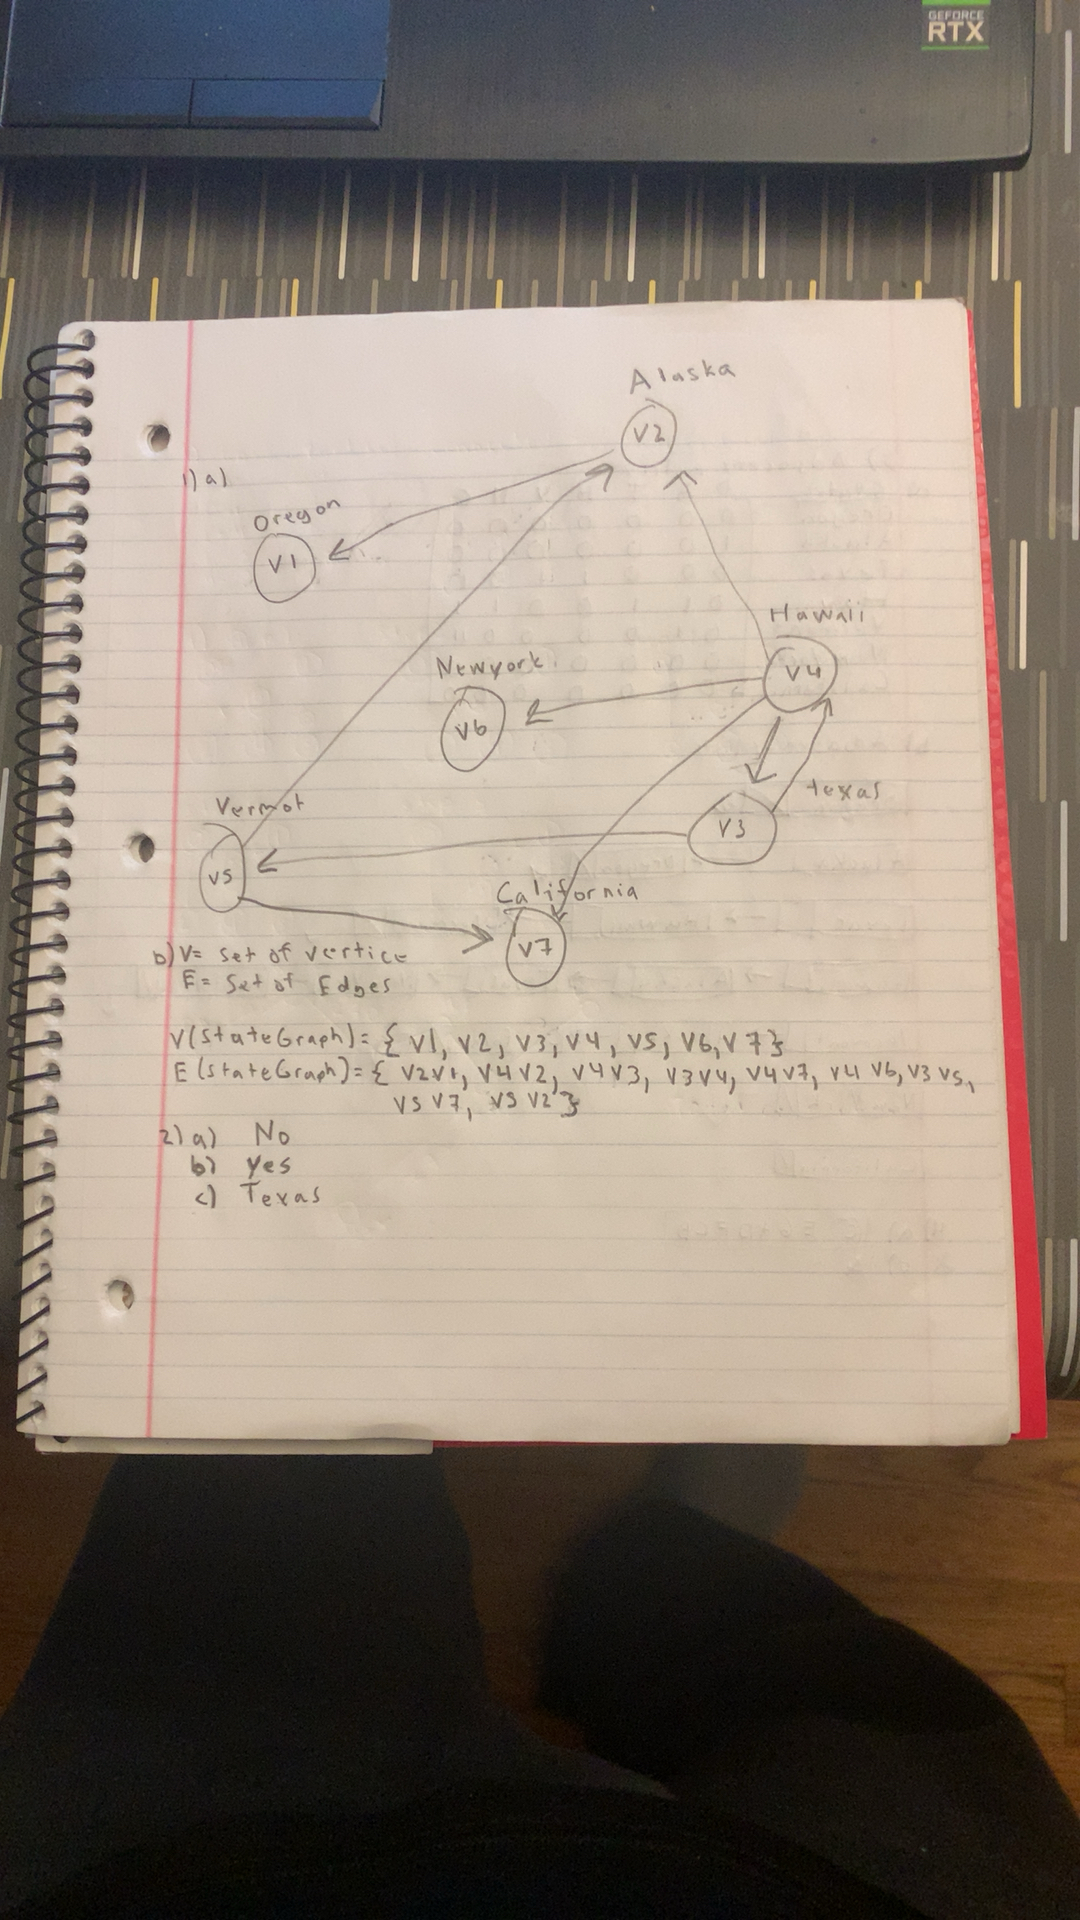 GEFORCE
RTX
Alaska
V2
1) a)
Oregon
V1
Hawaii
V4
Newyork
V6
texas
V3
Vermot
V5
California
V7
b) V= Set of vertice
E= Set of Edges
V(StateGraph)= { V1, V2, V3, V4, V5, V6, V7}
E(StateGraph)= { V2V1, V4V2, V4V3, V3V4, V4V7, V4V6, V3V5,
V5V7, V5V2}
2) a) No
b) yes
c) Texas